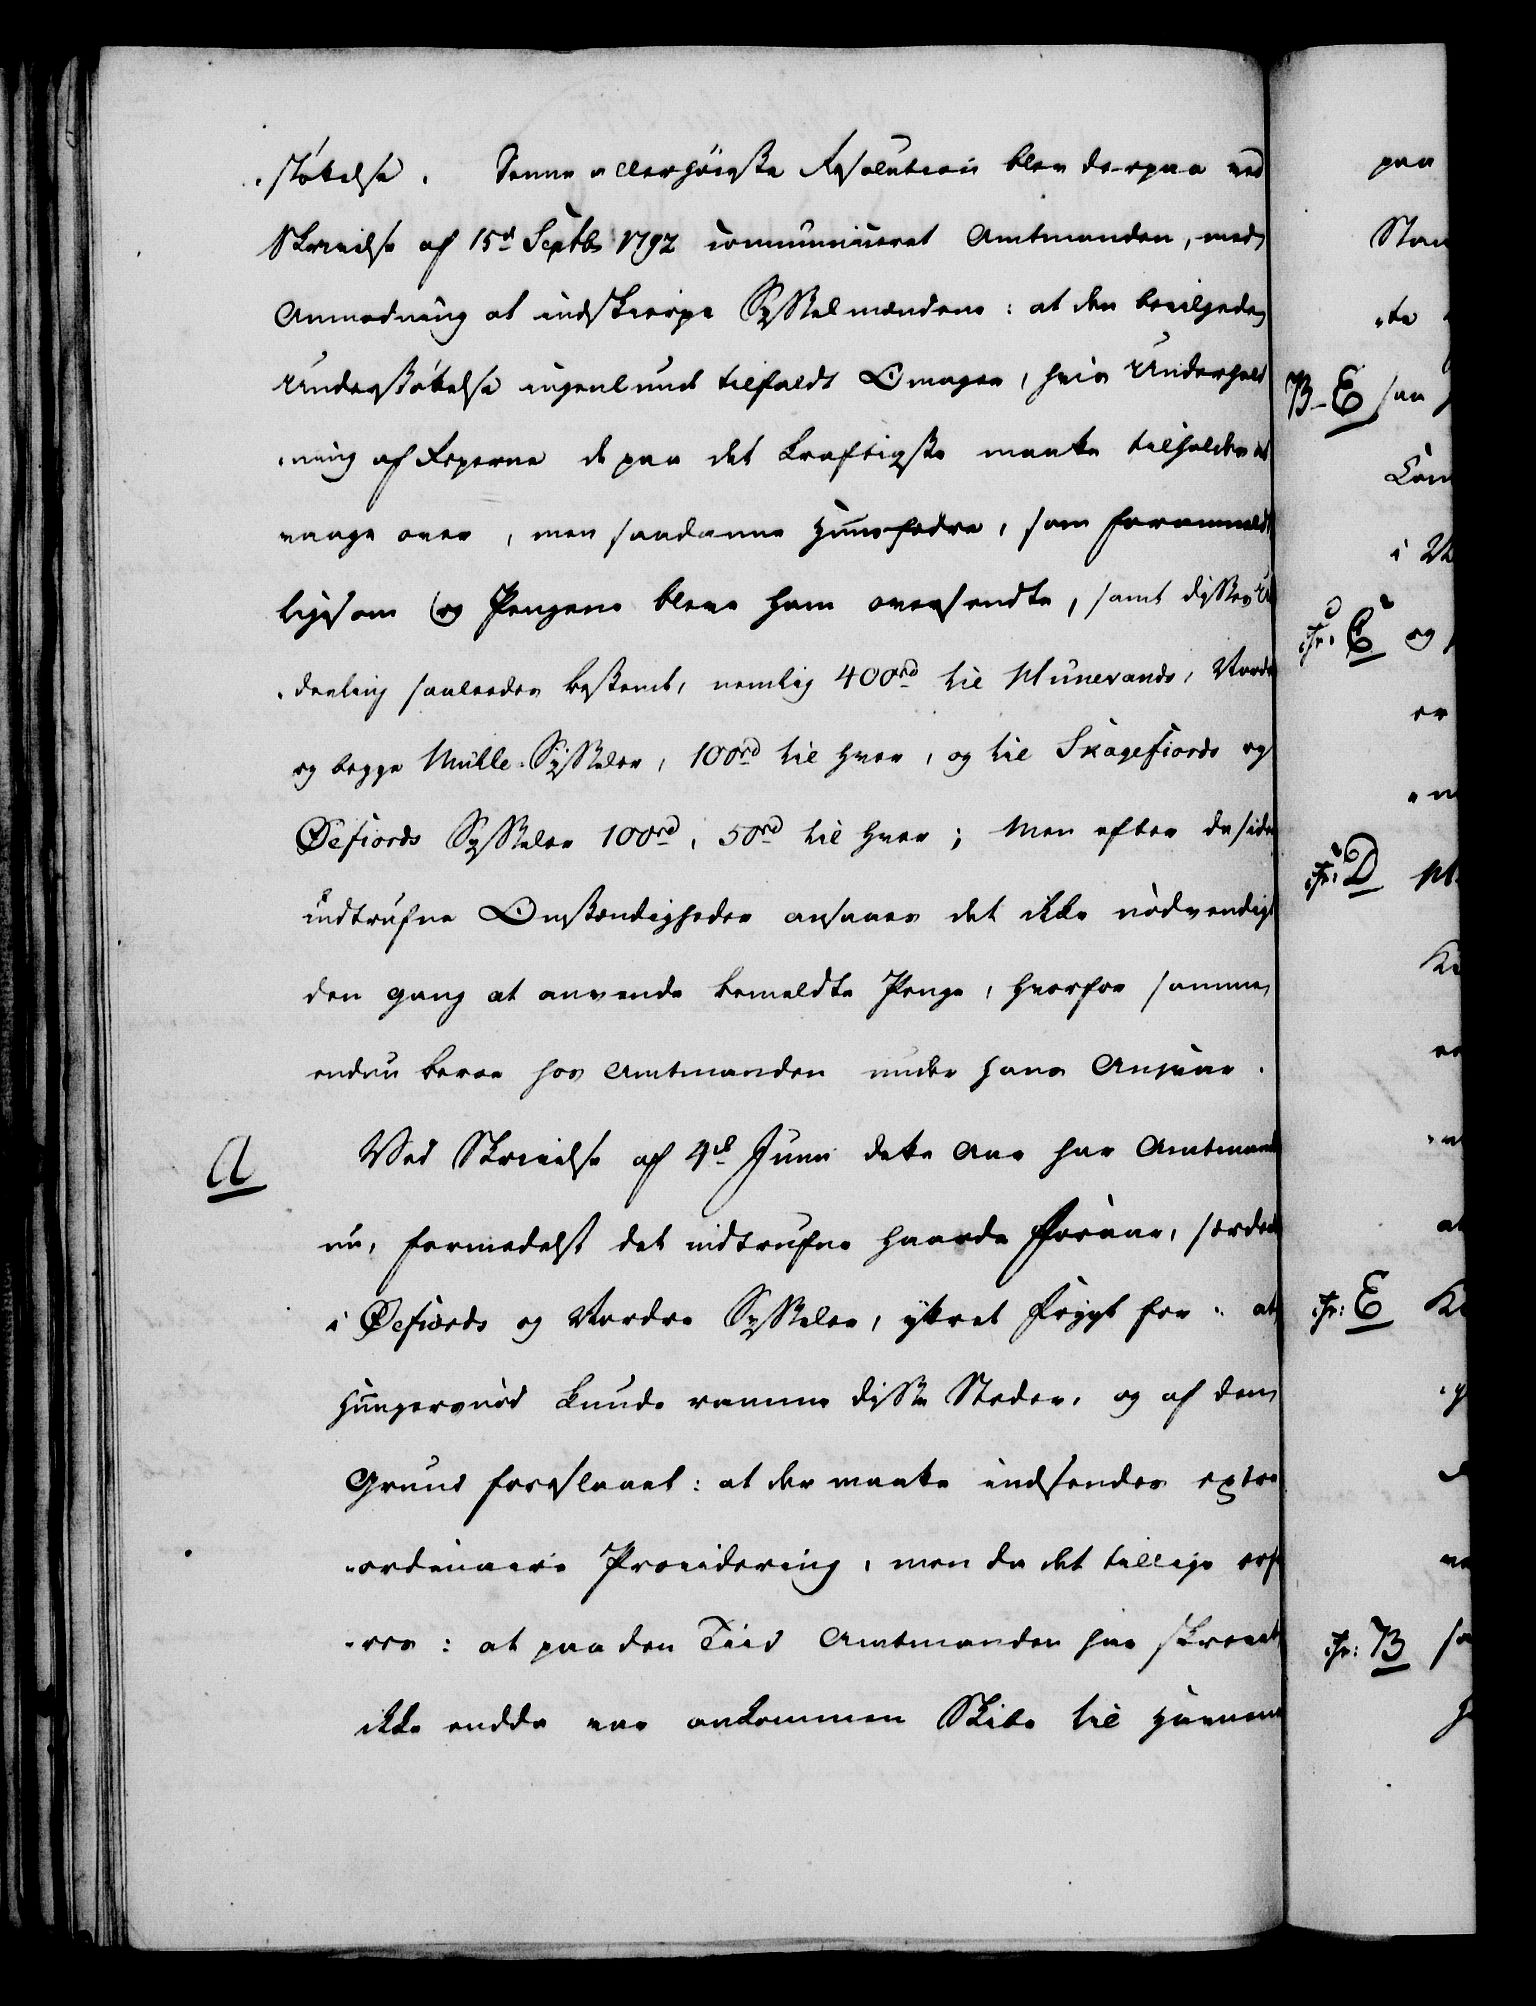 -støttelse. Denne allerhøieste Resolution blev derpaa ved
Skrivelse af 15d Septbr 1792 communiceret Amtmanden, med
Anmodning at indskierpe Sysselmændene: at den bevilgede
Understøttelse ingenlunde tilfaldt Omager, hvis Underhold-
-ning af Reperne de paa det kraftigste maatte tilholdes at
vaage over, men saadanne Huusfædre, som forommeldt
ligesom og Pengene bleve ham oversendte, samt disses Ud-
-deeling saaledes bestemt, nemlig 400rd til Munevands, Norder
og begge Mulle-Sysseler, 100rd til hver, og til Skagefiords og
Øefiords Sysseler 100rd, 50rd til hver; Men efter de siden
indtrufne Omstændigheder ansaaes det ikke nødvendigt
den gang at anvende bemeldte Penge, hvorfor samme
endnu beroe hos Amtmanden under hans Ansvar.
A
Ved Skrivelse af 4de Junii dette Aar har Amtmanden
nu, formedelst det indtrufne haarde Foraar, særdeles
i Øefiords og Nordre Sysseler, yttret Frygt for: at
Hungersnød kunde ramme disse Steder, og af den
Grund foreslaaet: at der maatte indsendes extra
-ordinaire Providering, men da det tillige erfa-
-res: at paa den Tiid Amtmanden har skrevet
ikke endda var ankommen Skibe til Havnene
paa
B-E saa
cfr: E og
er
cfr: D
cfr: E
cfr: B